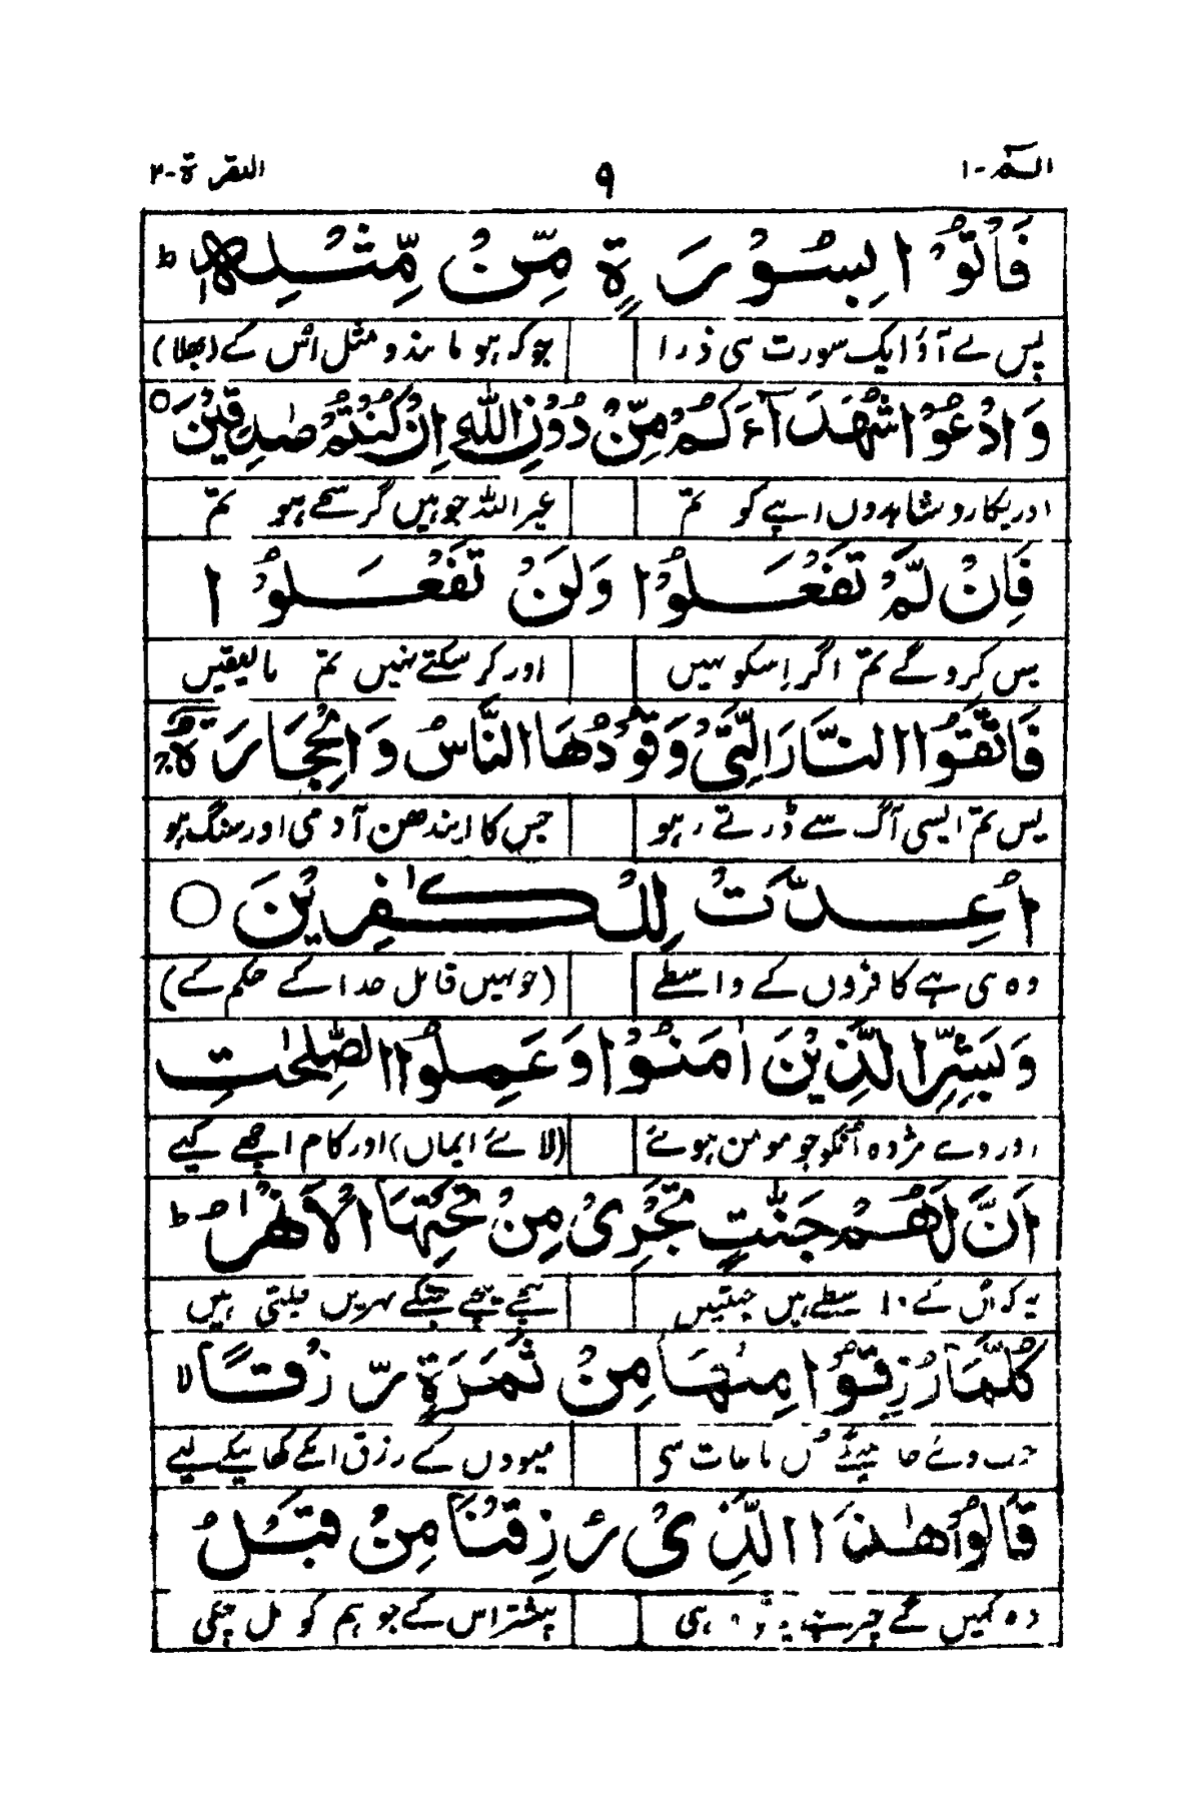 الٓمٓ-۱ ۹ البقرة-۲
فَاْتُوْا بِسُوْرَةٍ مِّنْ مِّثْلِهٖ ط
پس لے آؤ ایک سورت سی ذرا جو کہ ہو مانند و مثل اس کے (بھلا)
وَادْعُوْا شُهَدَآءَكُمْ مِّنْ دُوْنِ اللّٰهِ اِنْ كُنْتُمْ صٰدِقِيْنَ ○
اور پکارو شاہدوں اپنے کو تم غیر اللہ جو ہیں گر سچے ہو تم
فَاِنْ لَّمْ تَفْعَلُوْا وَلَنْ تَفْعَلُوْا
پس کرو گے تم اگر اسکو نہیں اور کر سکتے نہیں تم بالیقیں
فَاتَّقُوا النَّارَ الَّتِيْ وَقُوْدُهَا النَّاسُ وَالْحِجَارَةُ
پس تم ایسی آگ سے ڈرتے رہو جس کا ایندھن آدمی اور سنگ ہو
اُعِدَّتْ لِلْكٰفِرِيْنَ ○
وہ ہی ہے کافروں کے واسطے (جو نہیں قائل خدا کے حکم کے)
وَبَشِّرِ الَّذِيْنَ اٰمَنُوْا وَعَمِلُوا الصّٰلِحٰتِ
اور دے مژدہ اُنکو جو مومن ہوئے (لائے ایماں) اور کام اچھے کیے
اَنَّ لَهُمْ جَنّٰتٍ تَجْرِيْ مِنْ تَحْتِهَا الْاَنْهٰرُ ط
یہ کہ اُن کے واسطے ہیں جنتیں نیچے نیچے جنکے نہریں چلتی ہیں
كُلَّمَا رُزِقُوْا مِنْهَا مِنْ ثَمَرَةٍ رِّزْقًا لا
جب دئے جائینگے باغات سے میووں کے رزق انکے کھانیکے لیے
قَالُوْا هٰذَا الَّذِيْ رُزِقْنَا مِنْ قَبْلُ
وہ کہیں گے چیز ہے ہی پیشتر اس کے جو ہم کو مل چکی